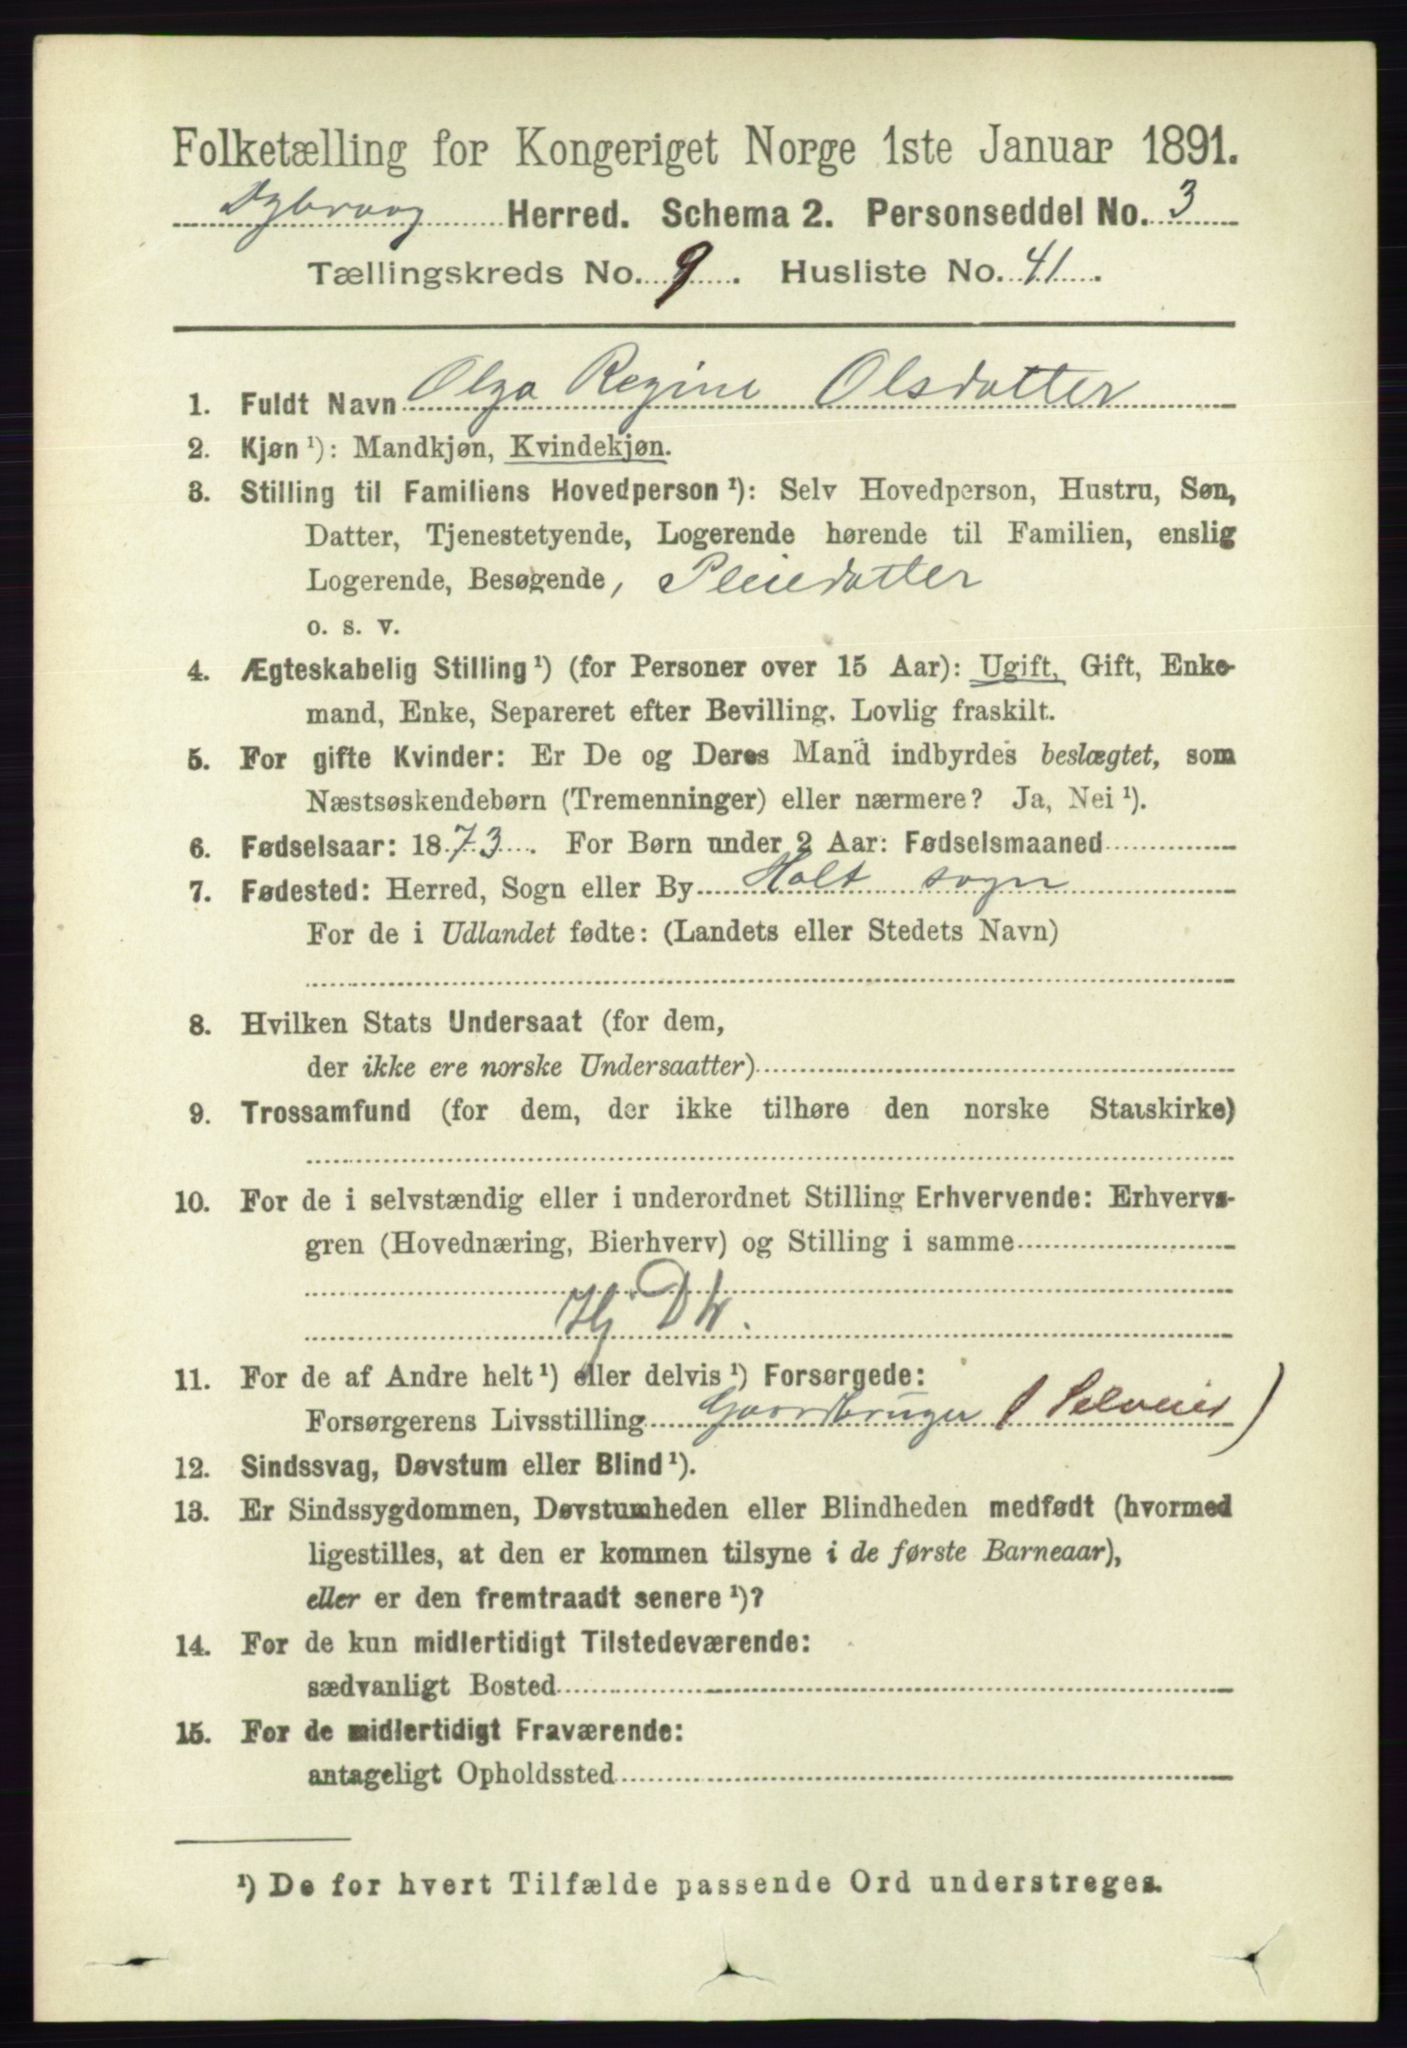 Folketælling for Kongeriget Norge 1ste Januar 1891.
Dybvaag Herred. Schema 2. Personseddel No. 3
Tællingskreds No. 9. Husliste No. 41.
1. Fuldt Navn Olga Regine Olsdatter
2. Kjøn ¹): Mandkjøn, Kvindekjøn.
3. Stilling til Familiens Hovedperson ¹): Selv Hovedperson, Hustru, Søn,
Datter, Tjenestetyende, Logerende hørende til Familien, enslig
Logerende, Besøgende, Pleiedatter
o. s. v.
4. Ægteskabelig Stilling ¹) (for Personer over 15 Aar): Ugift, Gift, Enke-
mand, Enke, Separeret efter Bevilling. Lovlig fraskilt.
5. For gifte Kvinder: Er De og Deres Mand indbyrdes beslægtet, som
Næstsøskendebørn (Tremenninger) eller nærmere? Ja, Nei ¹).
6. Fødselsaar: 1873. For Børn under 2 Aar: Fødselsmaaned
7. Fødested: Herred, Sogn eller By Holt sogn
For de i Udlandet fødte: (Landets eller Stedets Navn)
8. Hvilken Stats Undersaat (for dem,
der ikke ere norske Undersaatter)
9. Trossamfund (for dem, der ikke tilhøre den norske Statskirke)
10. For de i selvstændig eller i underordnet Stilling Erhvervende: Erhvervs-
gren (Hovednæring, Bierhverv) og Stilling i samme
Hj.
11. For de af Andre helt ¹) eller delvis ¹) Forsørgede:
Forsørgerens Livsstilling Gaardbruger (Selveier)
12. Sindssvag, Døvstum eller Blind ¹).
13. Er Sindssygdommen, Døvstumheden eller Blindheden medfødt (hvormed
ligestilles, at den er kommen tilsyne i de første Barneaar),
eller er den fremtraadt senere ¹)?
14. For de kun midlertidigt Tilstedeværende:
sædvanligt Bosted
15. For de midlertidigt Fraværende:
antageligt Opholdssted
¹) De for hvert Tilfælde passende Ord understreges.